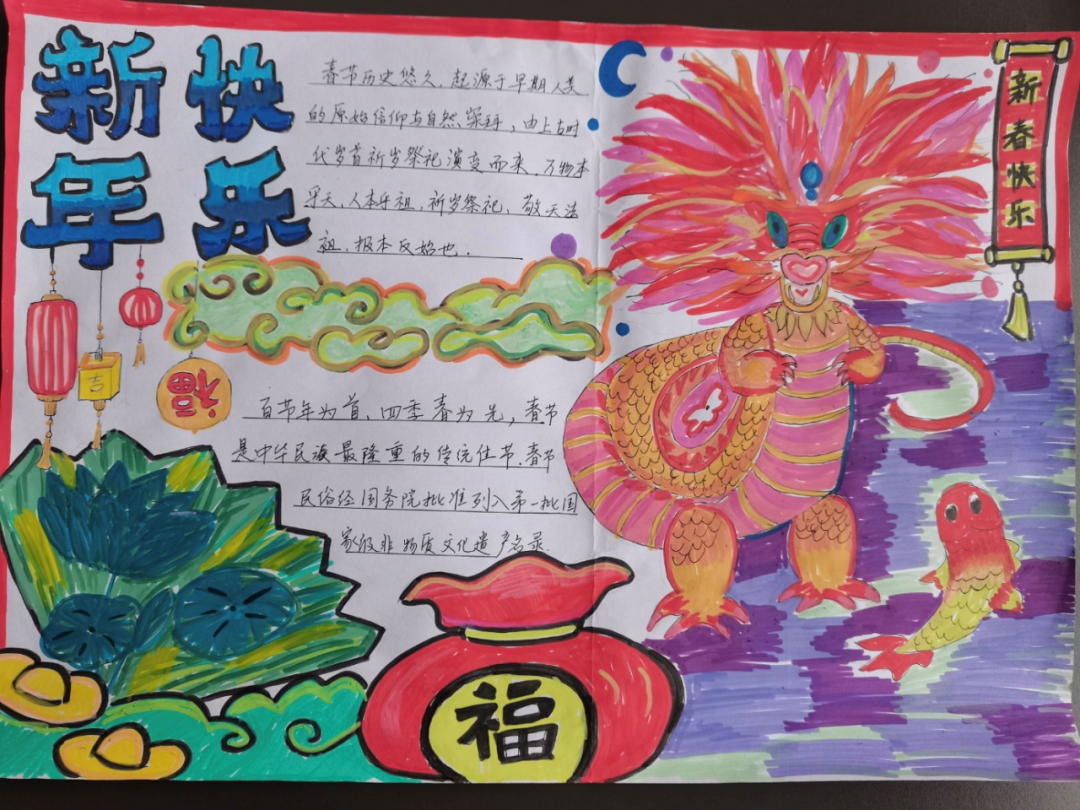 新快
年乐
春节历史悠久，起源于早期人类
的原始信仰与自然崇拜，由上古时
代岁首祈岁祭祀演变而来，万物本
乎天，人本乎祖，祈岁祭祀、敬天法
祖，报本反始也．
吉
福
百节年为首、四季春为先，春节
是中华民族最隆重的传统佳节．春节
民俗经国务院批准列入第一批国
家级非物质文化遗产名录．
福
新春快乐